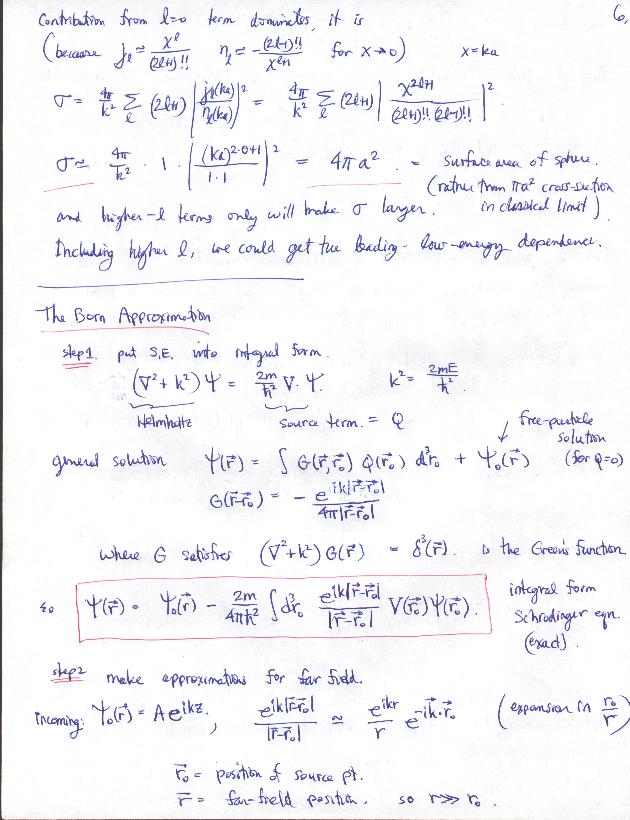 6,
Contribution from l=0 term dominates, it is
(because j_l ≈ x^l/(2l+1)!! n_l ≈ -(2l-1)!!/x^{l+1} for x→0) x=ka
σ = 4π/k² Σ_l (2l+1) |j_l(ka)/n_l(ka)|² = 4π/k² Σ_l (2l+1) |x^{2l+1}/((2l+1)!! (2l-1)!!)|².
σ ≃ 4π/k² · 1 · |(ka)^{2·0+1}/(1·1)|² = 4πa². = surface area of sphere.
(rather than πa² cross-section
in classical limit)
and higher-l terms only will make σ larger.
Including higher l, we could get the leading- low-energy dependence.
The Born Approximation
step1. put S.E. into integral form.
(∇²+k²) Ψ = 2m/ħ² V·Ψ. k² = 2mE/ħ.
Helmholtz source term. = Q
free-particle
solution
(for Q=0)
general solution Ψ(r⃗) = ∫ G(r⃗,r⃗₀) Q(r⃗₀) d³r₀ + Ψ₀(r⃗)
G(r⃗-r⃗₀) = - e^{ik|r⃗-r⃗₀|}/4π|r⃗-r⃗₀|
where G satisfies (∇²+k²) G(r⃗) = δ³(r⃗). is the Green's function.
so Ψ(r⃗) = Ψ₀(r⃗) - 2m/4πħ² ∫d³r₀ e^{ik|r⃗-r⃗₀|}/|r⃗-r⃗₀| V(r⃗₀)Ψ(r⃗₀). integral form
Schrodinger eqn.
(exact).
step2 make approximations for far field.
incoming: Ψ₀(r⃗) = Ae^{ikz}, e^{ik|r⃗-r⃗₀|}/|r⃗-r⃗₀| ≃ e^{ikr}/r e^{-ik⃗·r⃗₀} (expansion in r₀/r)
r⃗₀ = position of source pt.
r⃗ = far-field position. so r≫r₀.